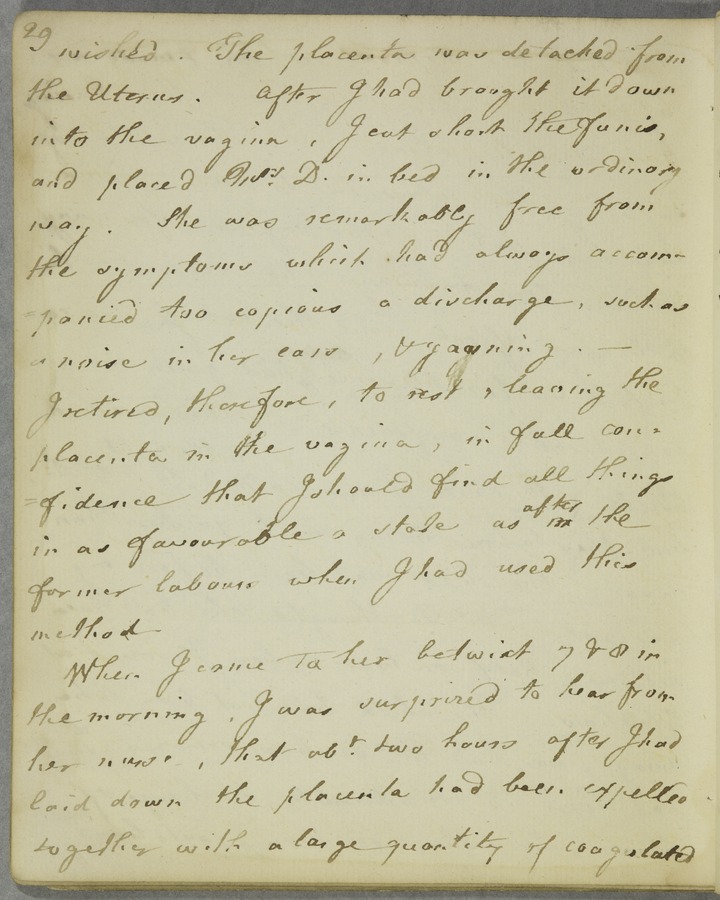 29
wished. The placenta was detached from
the Uterus. After I had brought it down
into the vagina, I cut short the funis,
and placed Mrs. D. in bed in the ordinary
way. She was remarkably free from
the symptoms which had always accom-
=panied too copious a discharge, such as
a noise in her ears, & yawning. —
I retired, therefore, to rest, leaving the
placenta in the vagina, in full con=
=fidence that I should find all things
in as favourable a state as after the
former labours when I had used this
method
When I came to her betwixt 7 & 8 in
the morning, I was surprized to hear from
her nurse, that abt. two hours after I had
laid down the placenta had been expelled
together with a large quantity of coagulated